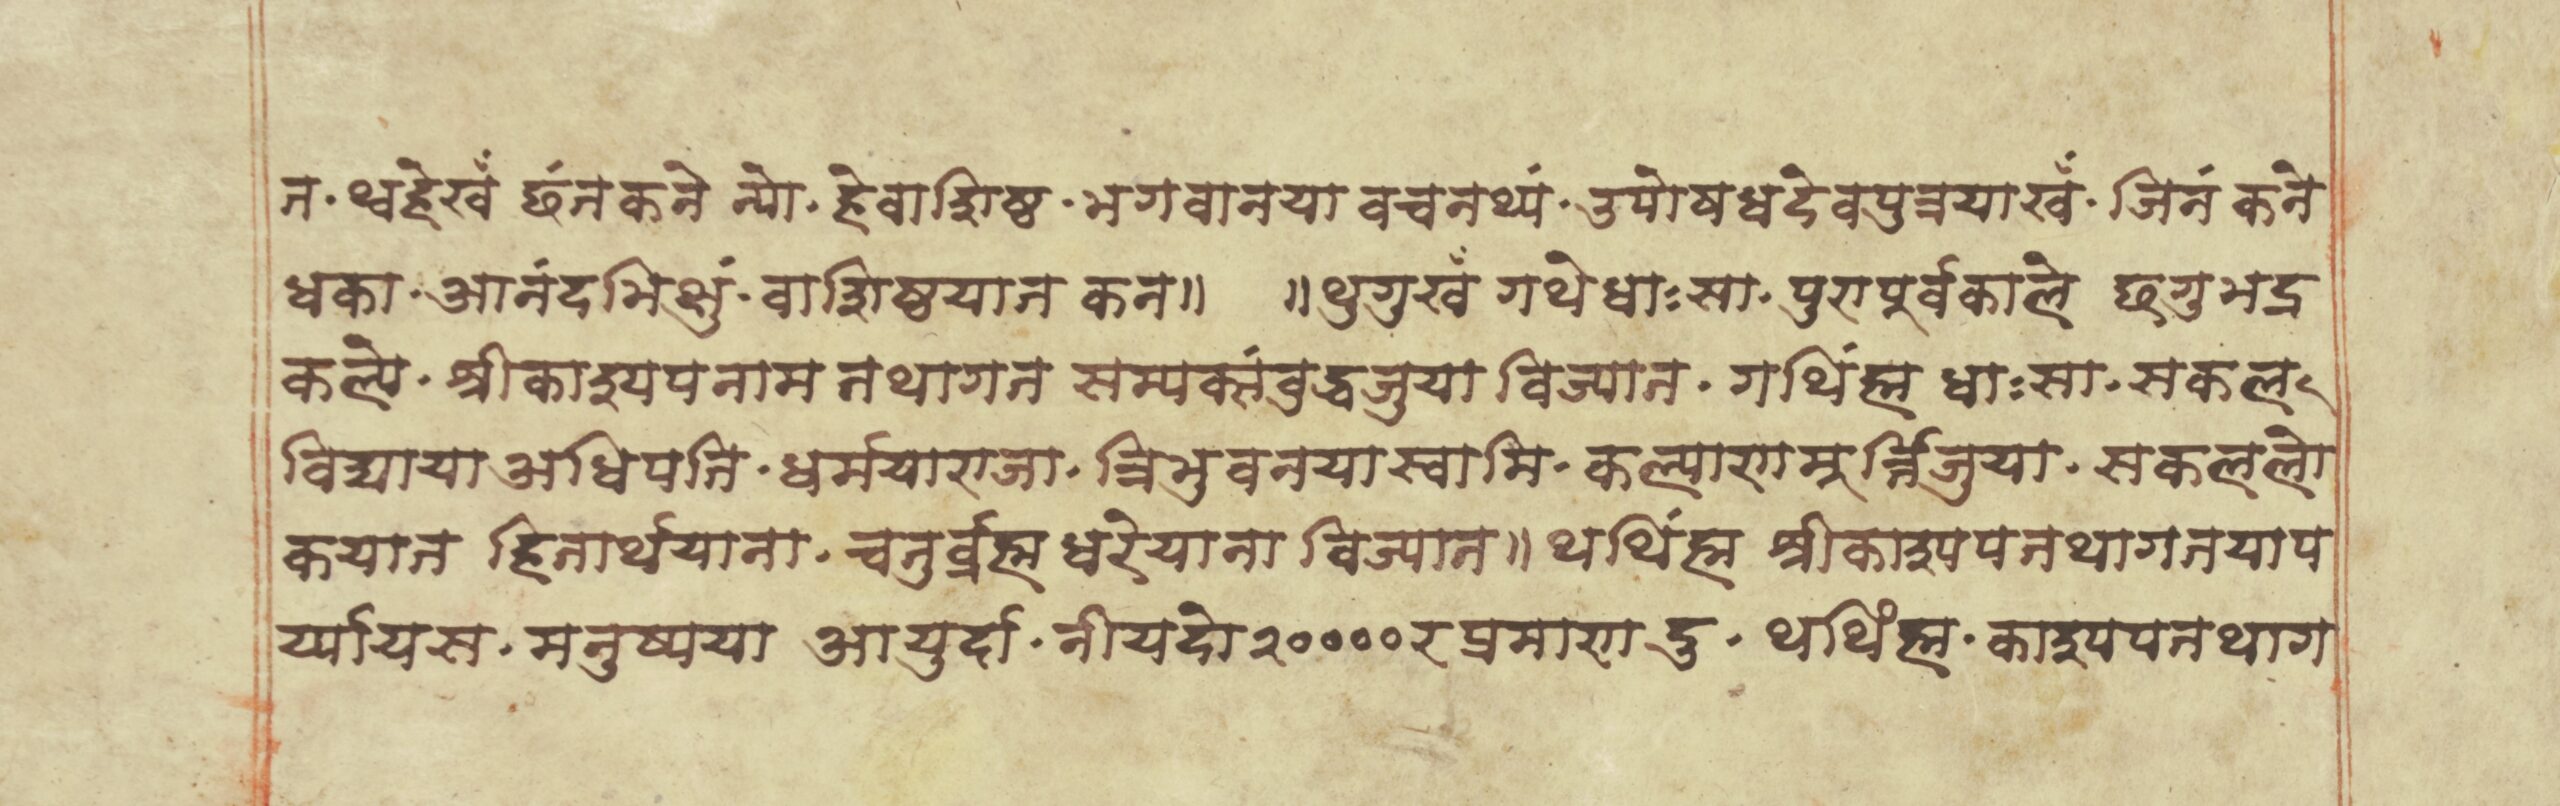 न · थ्वहेखँ छंनकने न्यो · हेवाशिष्ठ · भगवानया वचनथ्यं · उपोषधदेवपुत्रयाखँ · जिनं कने
धका · आनंदभिक्षुं · वाशिष्ठयात कन॥ ॥थुगुखँ गथेधाःसा · पुरापूर्वकाले छगुभद्र
कल्पे · श्रीकाश्यपनाम तथागत सम्यक्संबुद्धजुया विज्यात · गथिंह्म धाःसा · सकल
विद्याया अधिपति · धर्मयाराजा · त्रिभुवनयास्वामि · कल्याणमूर्त्तिजुया · सकललो
कयात हितार्थयाना · चतुर्ब्रह्म धरेयाना विज्यात॥ थथिंह्म श्रीकाश्यपतथागतयाप
र्य्यायस · मनुष्यया आयुर्दा · नीयदो२००००र प्रमाण दु · थथिंह्म · काश्यपतथाग